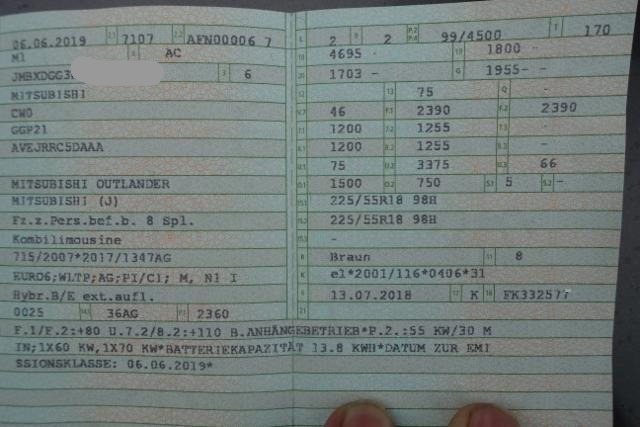 06.06.2019 2.1 7107 2.2 AFN00006 7
M1 4 AC
JMBXDGG3 3 6
MITSUBISHI
CW0
GGP21
AVEJRRC5DAAA
MITSUBISHI OUTLANDER
MITSUBISHI (J)
Fz.z.Pers.bef.b. 8 Spl.
Kombilimousine
715/2007*2017/1347AG
EURO6;WLTP;AG;PI/CI; M, N1 I
Hybr.B/E ext.aufl.
0025 14.1 36AG P.1 2360
L 2 9 2 P.2 P.4 99/4500 T 170
18 4695 - 19 1800 -
20 1703 - G 1955 -
12 - 13 75 Q -
V.7 46 F.1 2390 F.2 2390
7.1 1200 7.2 1255 7.3 -
8.1 1200 8.2 1255 8.3 -
U.1 75 U.2 3375 U.3 66
O.1 1500 O.2 750 S.1 5 S.2 -
15.1 225/55R18 98H
15.2 225/55R18 98H
15.3 -
R Braun 11 8
K e1*2001/116*0406*31
6 13.07.2018 17 K 16 FK332577
21
F.1/F.2:+80 U.7.2/8.2:+110 B.ANHÄNGEBETRIEB*P.2.:55 KW/30 M
IN;1X60 KW,1X70 KW*BATTERIEKAPAZITÄT 13.8 KWH*DATUM ZUR EMI
SSIONSKLASSE: 06.06.2019*